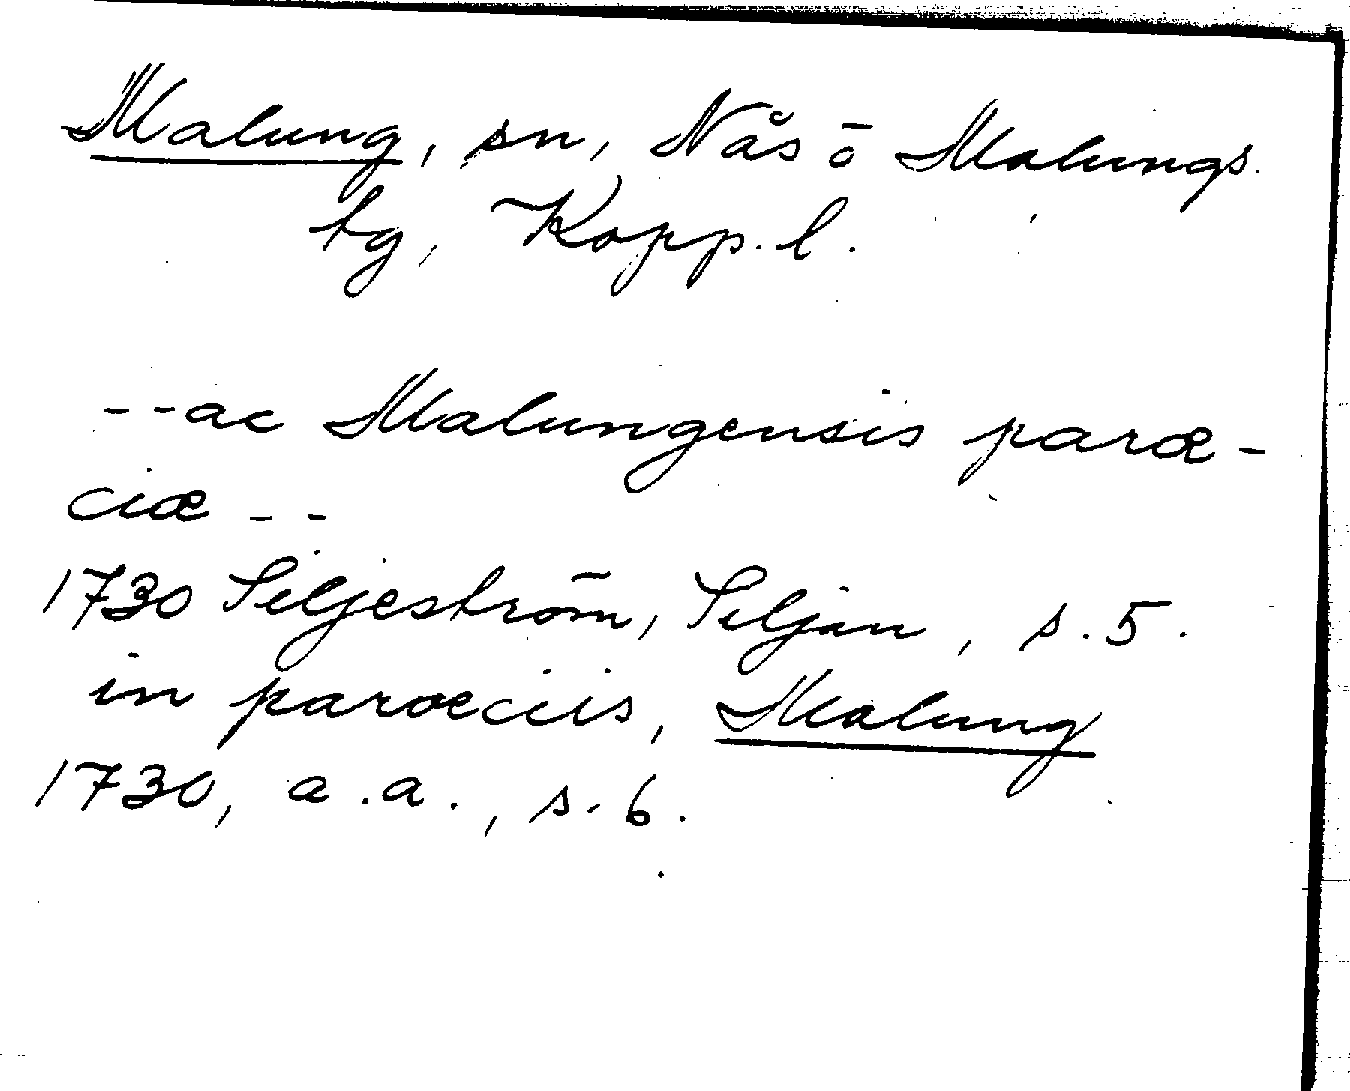 Malung, sn, Nås ō Malungs
tg, Kopp. l.
--ac Malungensis parœ-
ciæ --
1730 Siljeström, Siljan, s. 5.
in paroeciis, Malung
1730, a.a., s. 6.